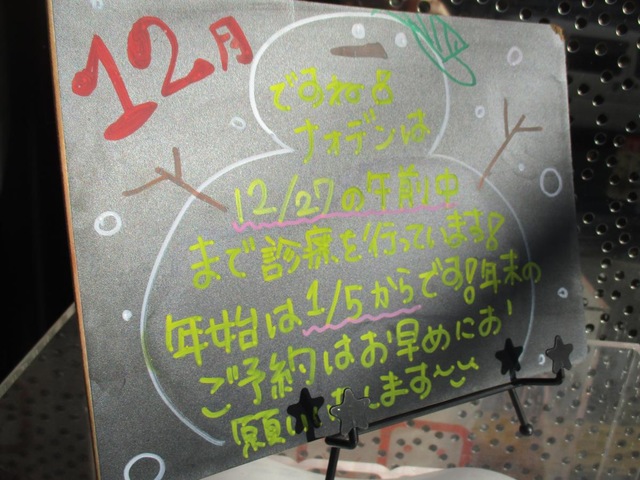 12月
ですね♪
ナオデンは
12/27の午前中
まで診療を行っています!
年始は1/5からです!年末の
ご予約はお早めにお
願いします〜